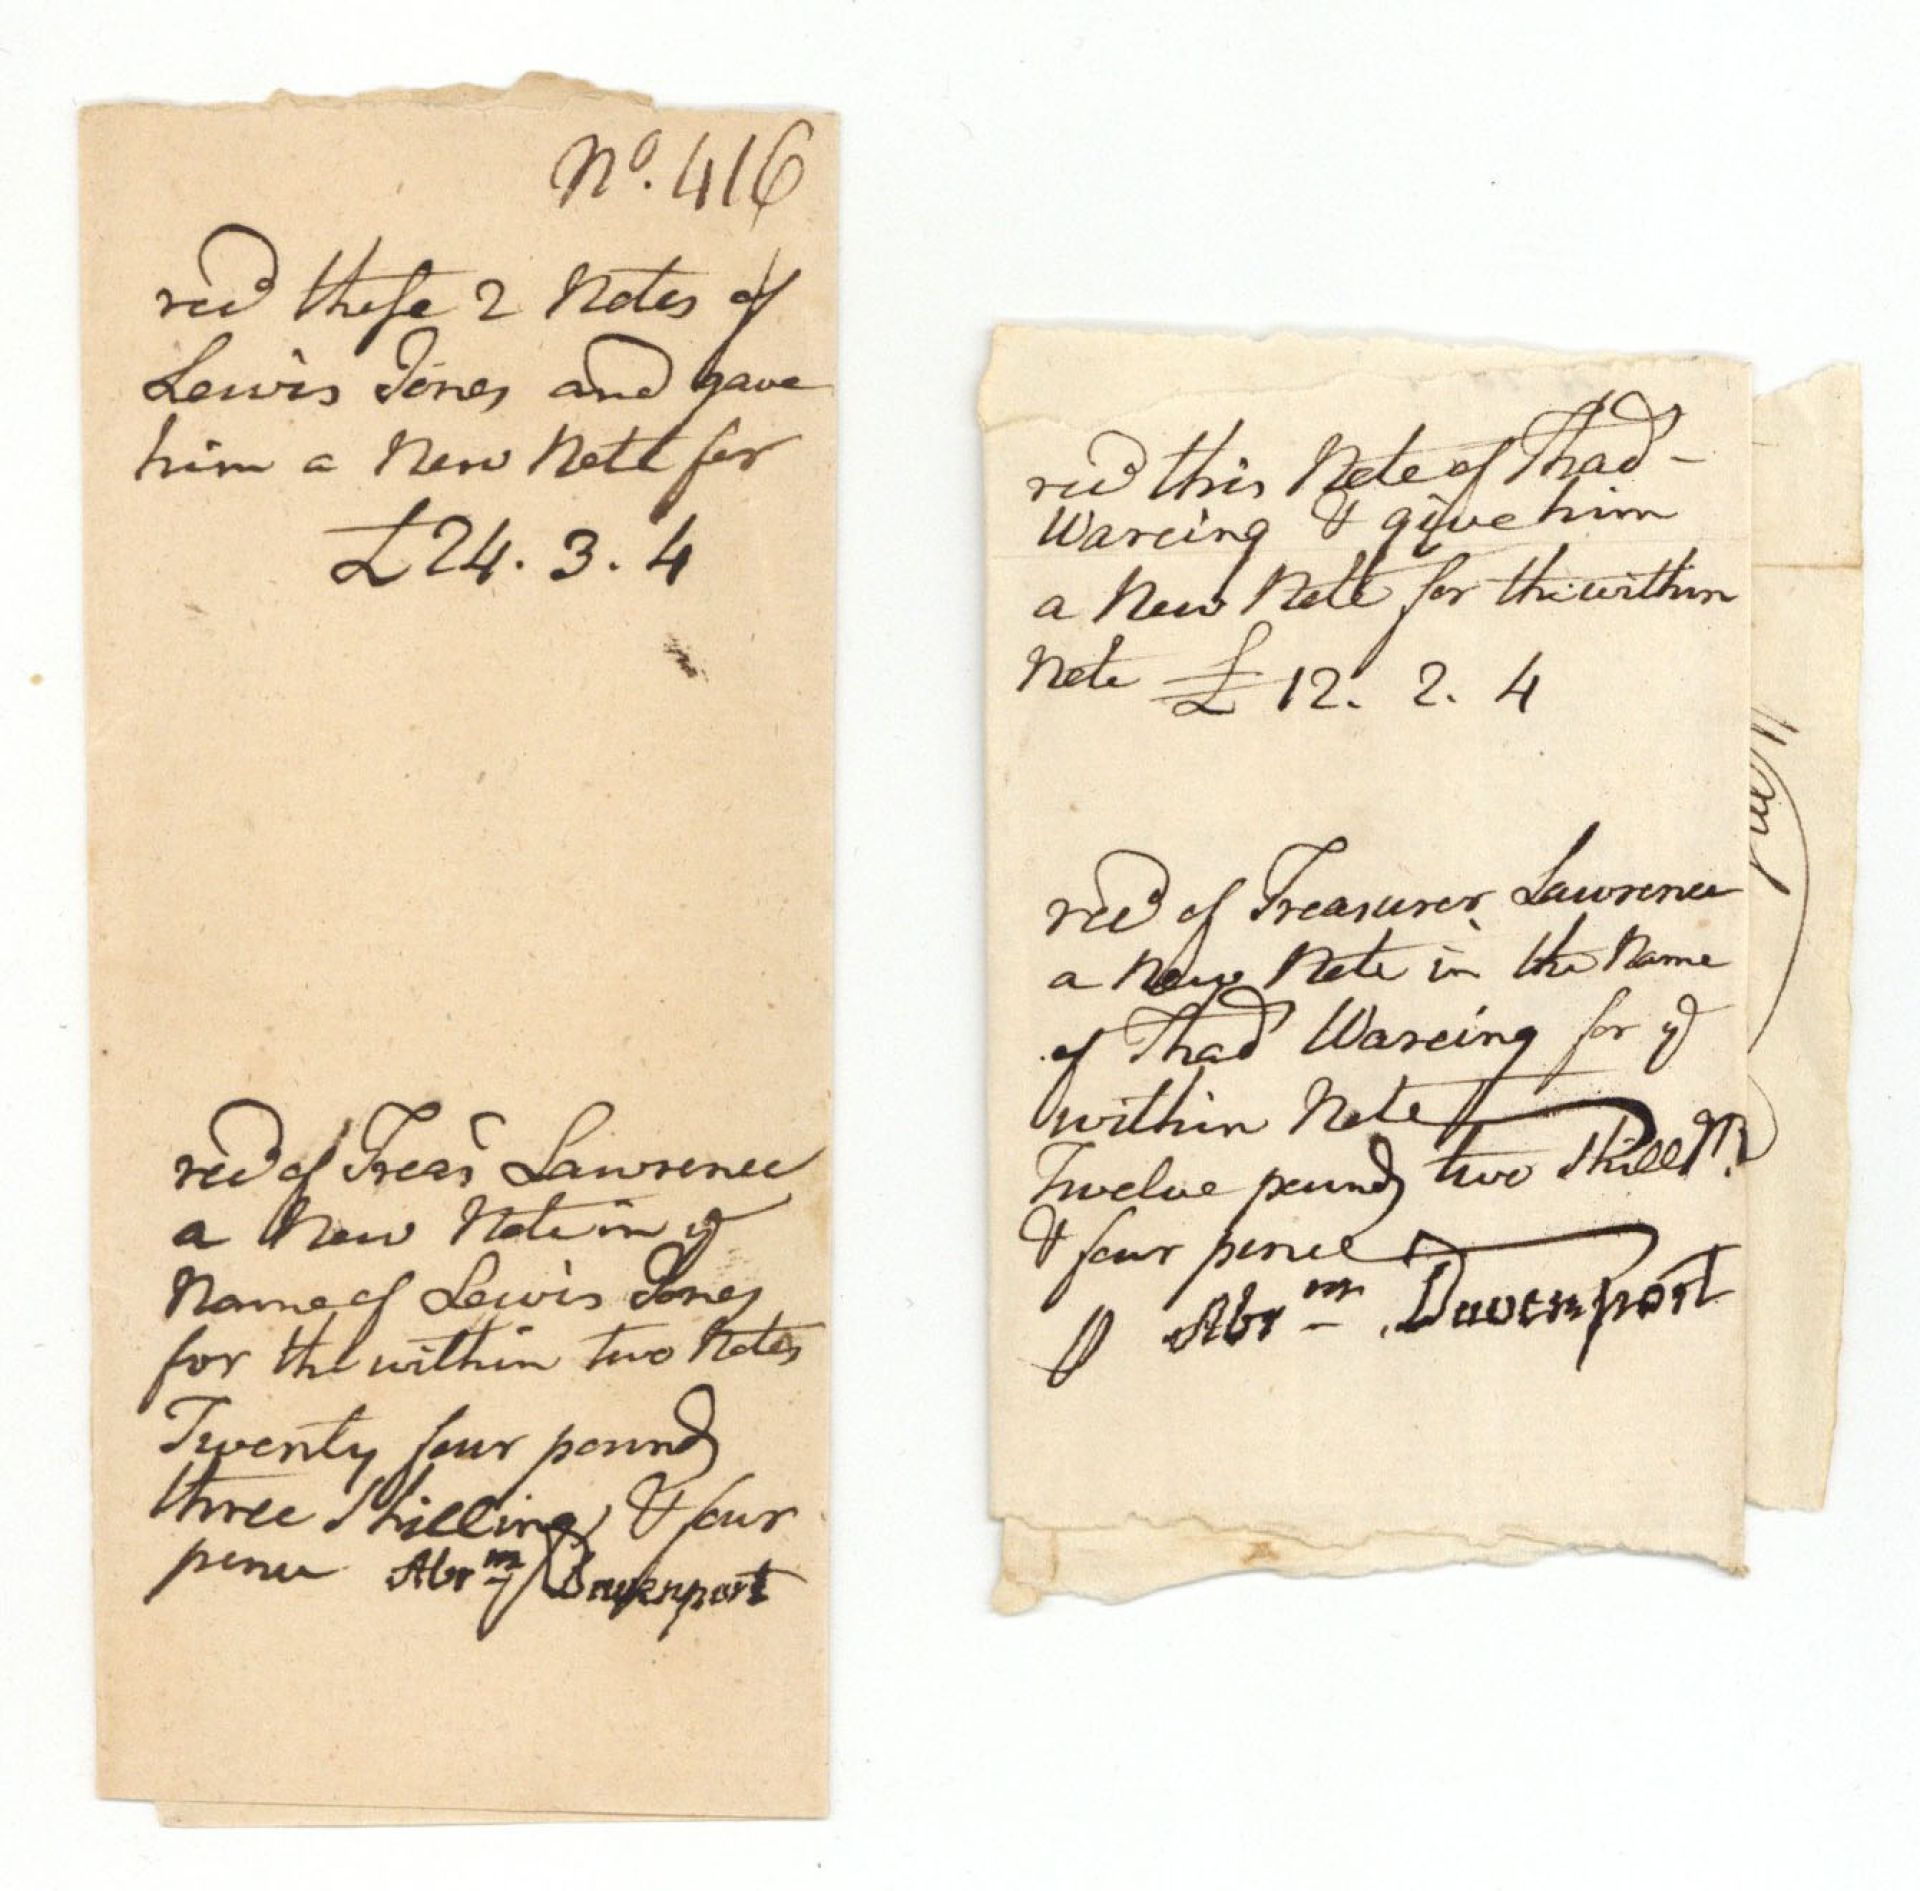 No. 416
recd these 2 Notes of
Lewis Jones and gave
him a New Note for
£24. 3. 4
recd of Treasr Lawrence
a New Note in ye
Name of Lewis Jones
for the within two Notes
Twenty four pounds
three Shillings & four
pence Abrm Davenport
recd this Note of Thad
Wareing & give him
a New Note for the within
Note £ 12. 2. 4
recd of Treasurer Lawrence
a New Note in the Name
of Thad Wareing for ye
within Note
Twelve pounds two Shills
& four pence
Abrm Davenport